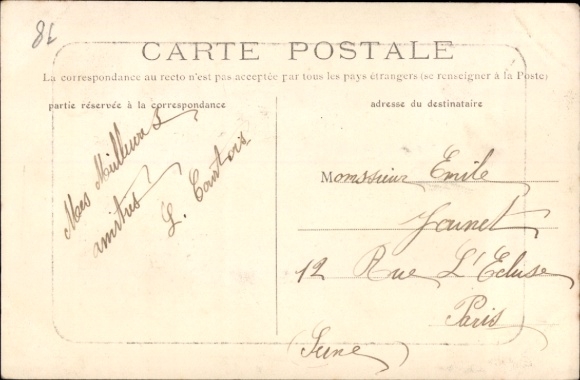 86
CARTE POSTALE
La correspondance au recto n'est pas acceptée par tous les pays étrangers (se renseigner à la Poste)
partie réservée à la correspondance
adresse du destinataire
Mes Meilleurs
amitres
L. Contois
Monssieur Emile
Jounet
12 Rue L'Ecluse
Paris
Seine